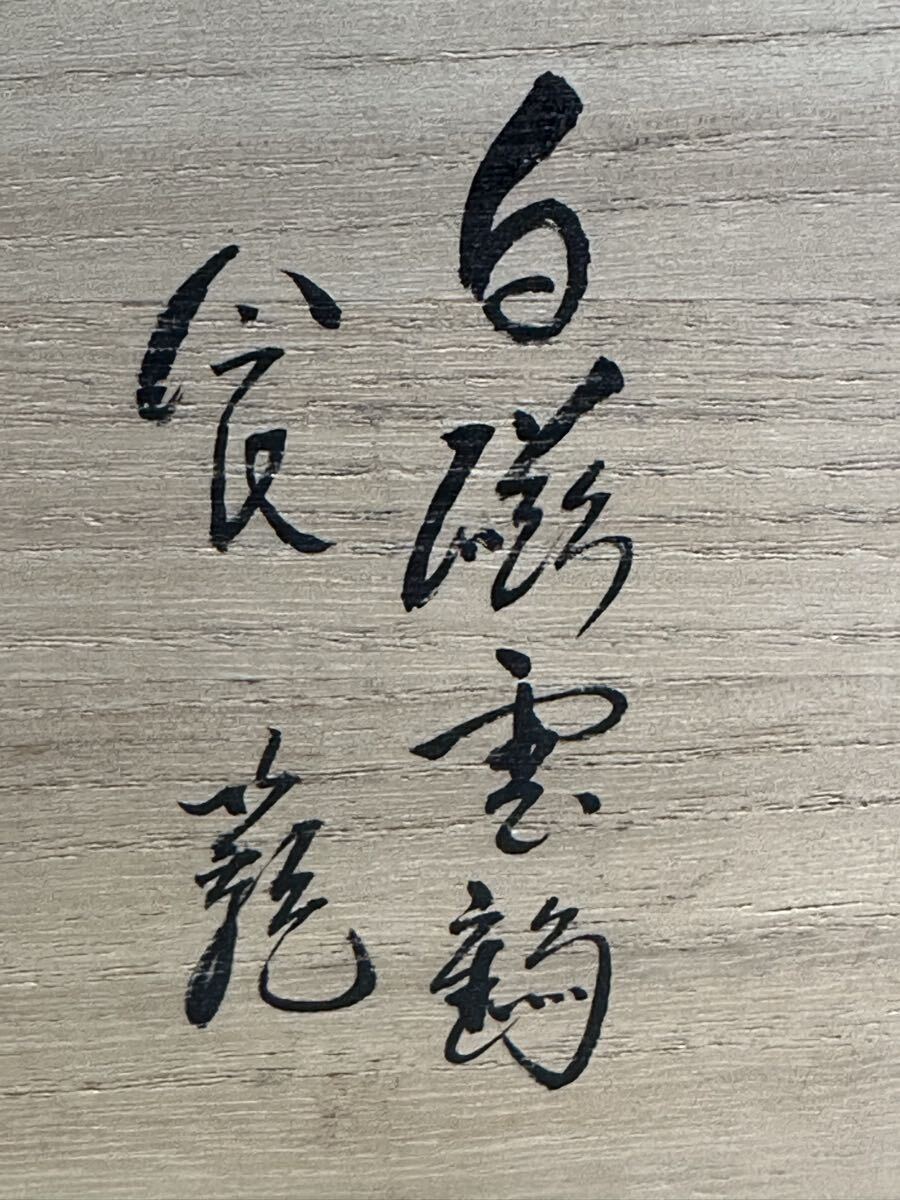 白磁雲鶴
食籠